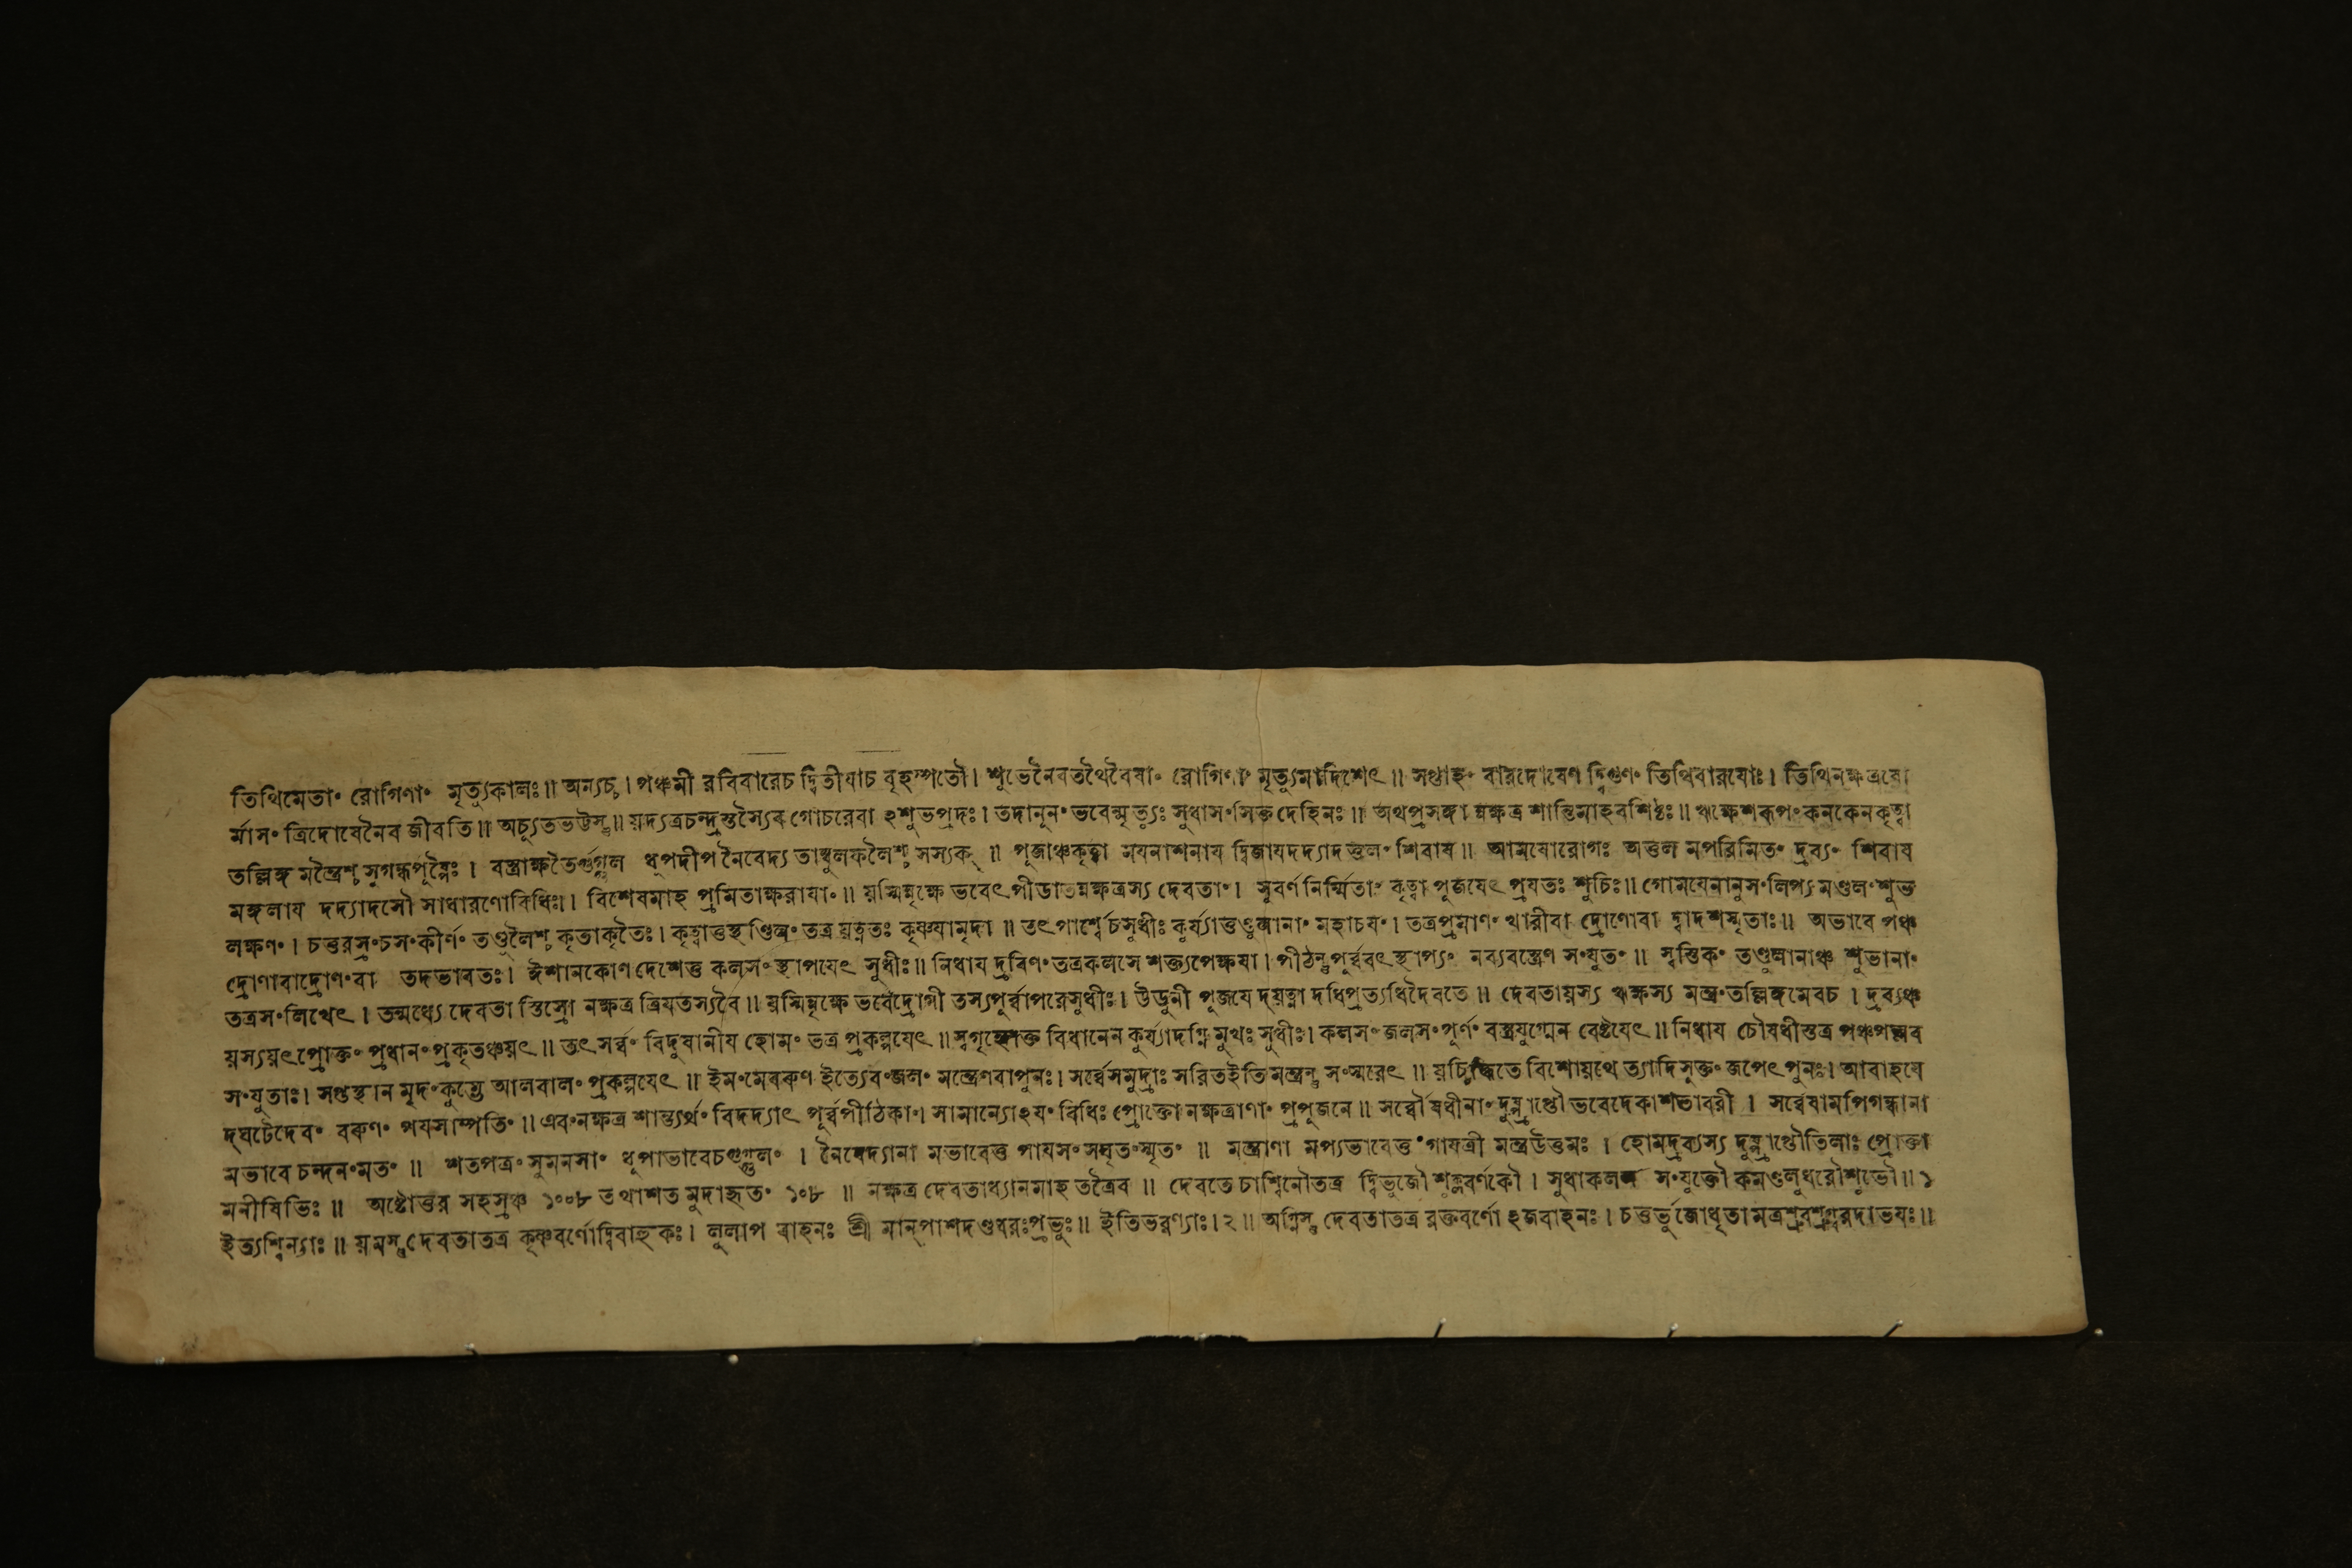 তিথিমেতাং রোগিণাং মৃত্যুকালঃ॥ অন্যচ্চ। পঞ্চমী রবিবারেচ দ্বিতীযাচ বৃহস্পতৌ। শুভেনৈবতথৈবৈষাং রোগিণাং মৃত্যুমাদিশেৎ॥ সপ্তাহং বারদোষেণ দ্বিগুণং তিথিবারযোঃ। তিথিনক্ষত্রযো
র্মাসং ত্রিদোষেনৈব জীবতি॥ অচ্যুতভট্টস্তু॥ য়দ্যত্রচন্দ্রস্তস্যৈব গোচরেবা ঽশুভপ্রদঃ। তদানূনং ভবেন্মৃত্যুঃ সুধাসংসিক্ত দেহিনঃ॥ অথপ্রসঙ্গা ন্নক্ষত্র শান্তিমাহবশিষ্ঠঃ॥ ঋক্ষেশরূপং কনকেনকৃত্বা
তল্লিঙ্গ মন্ত্রৈশ্চ সুগন্ধপুষ্পৈঃ। বস্ত্রাক্ষতৈর্গুগ্গুল ধূপদীপ নৈবেদ্য তাম্বুলফলৈশ্চ সম্যক্॥ পূজাঞ্চকৃত্বা মযনাশনায দ্বিজাযদদ্যাদতুলং শিবায॥ আমযোরোগঃ অতুল মপরিমিতং দ্রব্যং শিবায
মঙ্গলায দদ্যাদসৌ সাধারণোবিধিঃ। বিশেষমাহ প্রমিতাক্ষরাযাং॥ য়স্মিন্নৃক্ষে ভবেৎ পীডাতন্নক্ষত্রস্য দেবতাং। সুবর্ণ নির্ম্মিতাং কৃত্বা পূজযেৎ প্রযতঃ শুচিঃ॥ গোমযেনানুসংলিপ্য মণ্ডলং শুভ
লক্ষণং। চতুরস্রংচসংকীর্ণং তণ্ডুলৈশ্চ কৃতাকৃতৈঃ। কৃত্বাতুস্থণ্ডিলং তত্র য়ত্নতঃ কৃষ্ণযামৃদা॥ তৎপার্শ্বেচসুধীঃ কুর্য্যাত্তণ্ডুলানাং মহাচযং। তত্রপ্রমাণং খারীবা দ্রোণোবা দ্বাদশস্মৃতাঃ॥ অভাবে পঞ্চ
দ্রোণাবাদ্রোণংবা তদভাবতঃ। ঈশানকোণ দেশেতু কলসং স্থাপযেৎ সুধীঃ॥ নিধায দ্রবিণং তত্রকলসে শক্ত্যপেক্ষযা। পীঠন্তুপূর্ব্ববৎ স্থাপ্যং নব্যবস্ত্রেণ সংযুতং॥ স্বস্তিকং তণ্ডুলানাঞ্চ শুভানাং
তত্রসংলিখেৎ। তন্মধ্যে দেবতা স্তিস্রো নক্ষত্র ত্রিযতস্যবৈ॥ য়স্মিন্নৃক্ষে ভবেদ্রোগী তস্যপূর্ব্বাপরেসুধীঃ। উডুনী পূজযে দ্য়ত্না দধিপ্রত্যধিদৈবতে॥ দেবতায়স্য ঋক্ষস্য মন্ত্রং তল্লিঙ্গমেবচ। দ্রব্যঞ্চ
য়স্যয়ৎপ্রোক্তং প্রধানং প্রকৃতঞ্চয়ৎ॥ তৎ সর্ব্বং বিদুষানীয হোমং তত্র প্রকল্পযেৎ॥ স্বগৃহ্যোক্ত বিধানেন কুর্য্যাদগ্নি মুখঃ সুধীঃ। কলসং জলসংপূর্ণং বস্ত্রযুগ্মেন বেষ্টযেৎ॥ নিধায চৌষধীস্তত্র পঞ্চপল্লব
সংযুতাঃ। সপ্তস্থান মৃদং কুম্ভে আলবালং প্রকল্পযেৎ॥ ইমংমেবরুণ ইত্যেবং জলং মন্ত্রেণবাপুনঃ। সর্ব্বেসমুদ্রাঃ সরিতইতি মন্ত্রন্তু সংস্মরেৎ॥ য়চ্চিদ্ধিতে বিশোয়থে ত্যাদিসুক্তং জপেৎ পুনঃ। আবাহযে
দ্ঘটেদেবং বরুণং পযসাম্পতিং॥ এবংনক্ষত্র শান্ত্যর্থং বিদদ্যাৎ পূর্ব্বপীঠিকাং। সামান্যোঽযংবিধিঃ প্রোক্তো নক্ষত্রাণাং প্রপূজনে॥ সর্ব্বৌষধীনাং দুষ্প্রাপ্তৌ ভবেদেকাশতাবরী। সর্ব্বেষামপিগন্ধানা
মভাবে চন্দনংমতং॥ শতপত্রংসুমনসাং ধূপাভাবেচগুগ্গুলং। নৈবেদ্যানা মভাবেতু পাযসং সঘৃতংস্মৃতং॥ মন্ত্রাণা মপ্যভাবেতু গাযত্রী মন্ত্রউত্তমঃ। হোমদ্রব্যস্য দুষ্প্রাপ্তৌতিলাঃ প্রোক্তা
মনীষিভিঃ॥ অষ্টোত্তর সহস্রঞ্চ ১০০৮ তথাশত মুদাহৃতং ১০৮॥ নক্ষত্র দেবতাধ্যানমাহ তত্রৈব॥ দেবতে চাশ্বিনৌতত্র দ্বিভুজৌ শুক্লবর্ণকৌ। সুধাকলস সংযুক্তৌ কমণ্ডলুধরৌশুভৌ॥ ১
ইত্যশ্বিন্যাঃ॥ য়মস্তু দেবতাতত্র কৃষ্ণবর্ণোদ্বিবাহুকঃ। লুলাপ বাহনঃ শ্রী মান্পাশদণ্ডধরঃপ্রভুঃ॥ ইতিভরণ্যাঃ। ২॥ অগ্নিস্তু দেবতাতত্র রক্তবর্ণো ঽজবাহনঃ। চতুর্ভুজোধৃতা